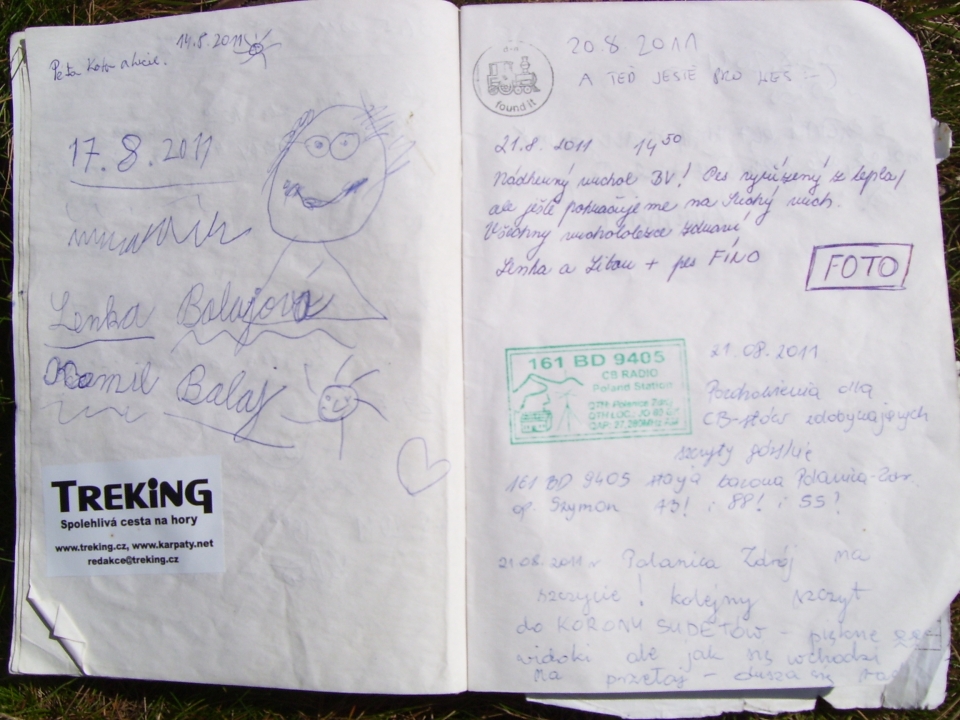 14.8.2011
Peťa Kato a Lucie.
17.8.2011
Lenka Balajová
Kamil Balaj
TREKiNG
Spolehlivá cesta na hory
www.treking.cz, www.karpaty.net
redakce@treking.cz
found it
20.8.2011
A TEĎ JEŠTĚ PRO LEŠ :-)
21.8.2011 14⁵⁰
Nádherný vrchol BV! Pes vyřízený z tepla,
ale ještě pokračujeme na Suchý vrch.
Všechny vrcholoezce zdraví
Lenka a Libor + pes FÍNO
FOTO
161 BD 9405
CB RADIO
Poland Station
QTH: Polanica Zdroj
QTH LOC.: JO 80
QAP: 27,280MHz FM
21.08.2011
Pozdrowienia dla
CB-stów zdobywających
szczyty górskie
161 BD 9405 stacja bazowa Polanica-Zdr.
op. Szymon 73! i 88! i 55!
21.08.2011 r Polanica Zdrój na
szczycie! kolejny szczyt
do KORONY SUDETÓW - piękne
widoki ale jak się wchodzi
na przełaj - dusza się